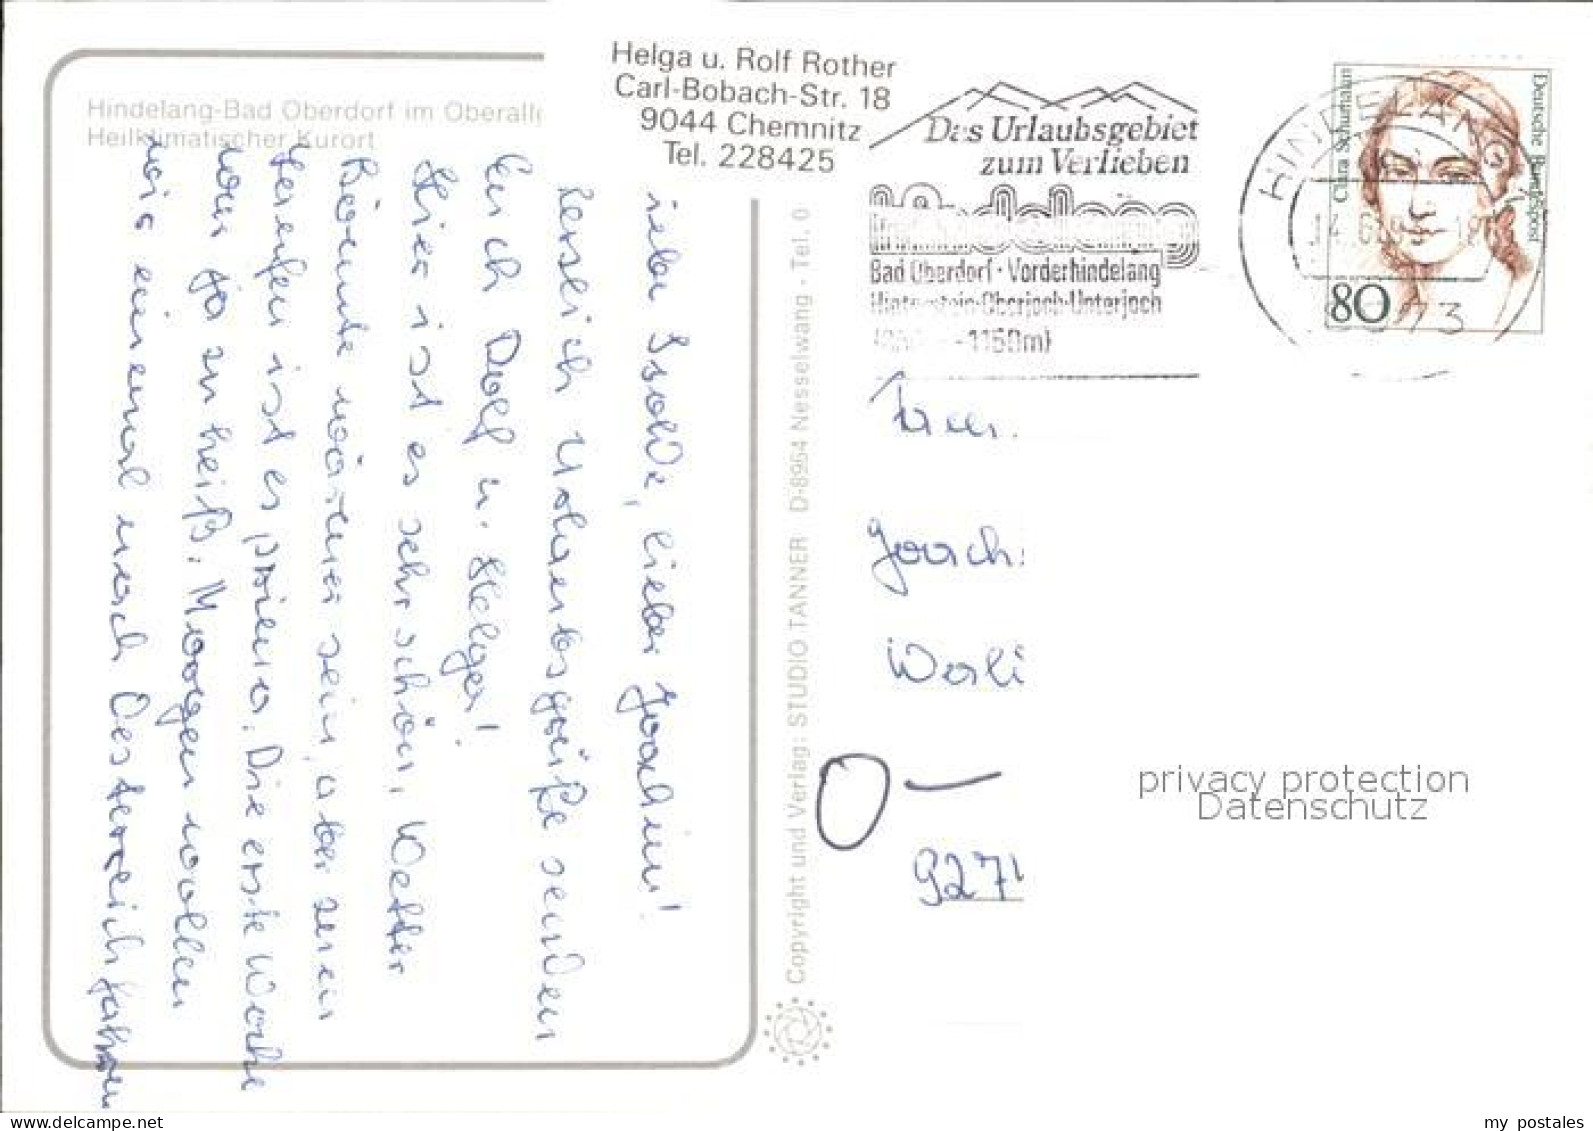 Hindelang-Bad Oberdorf im Oberallg
Heilklimatischer Kurort
Helga u. Rolf Rother
Carl-Bobach-Str. 18
9044 Chemnitz
Tel. 228425
Das Urlaubsgebiet
zum Verlieben
Hindelang
Bad Oberdorf · Vorderhindelang
Hinterstein·Oberjoch·Unterjoch
-1150m)
HINDELANG
8973
Clara Schumann
Deutsche Bundespost
80
Liebe Isolde, lieber Joachim!
Herzlich Urlaubsgrüße senden
Euch Rolf u. Helga!
Hier ist es sehr schön, Wetter
könnte wärmer sein, aber zum
Laufen ist es prima. Die erste Woche
war ja zu heiß. Morgen wollen
wir einmal nach Oesterreich fahren
Copyright und Verlag: STUDIO TANNER D-8964 Nesselwang - Tel. 0
Fam.
Joach.
Woli
O-
9271
privacy protection
Datenschutz
delcampe.net
my_postales